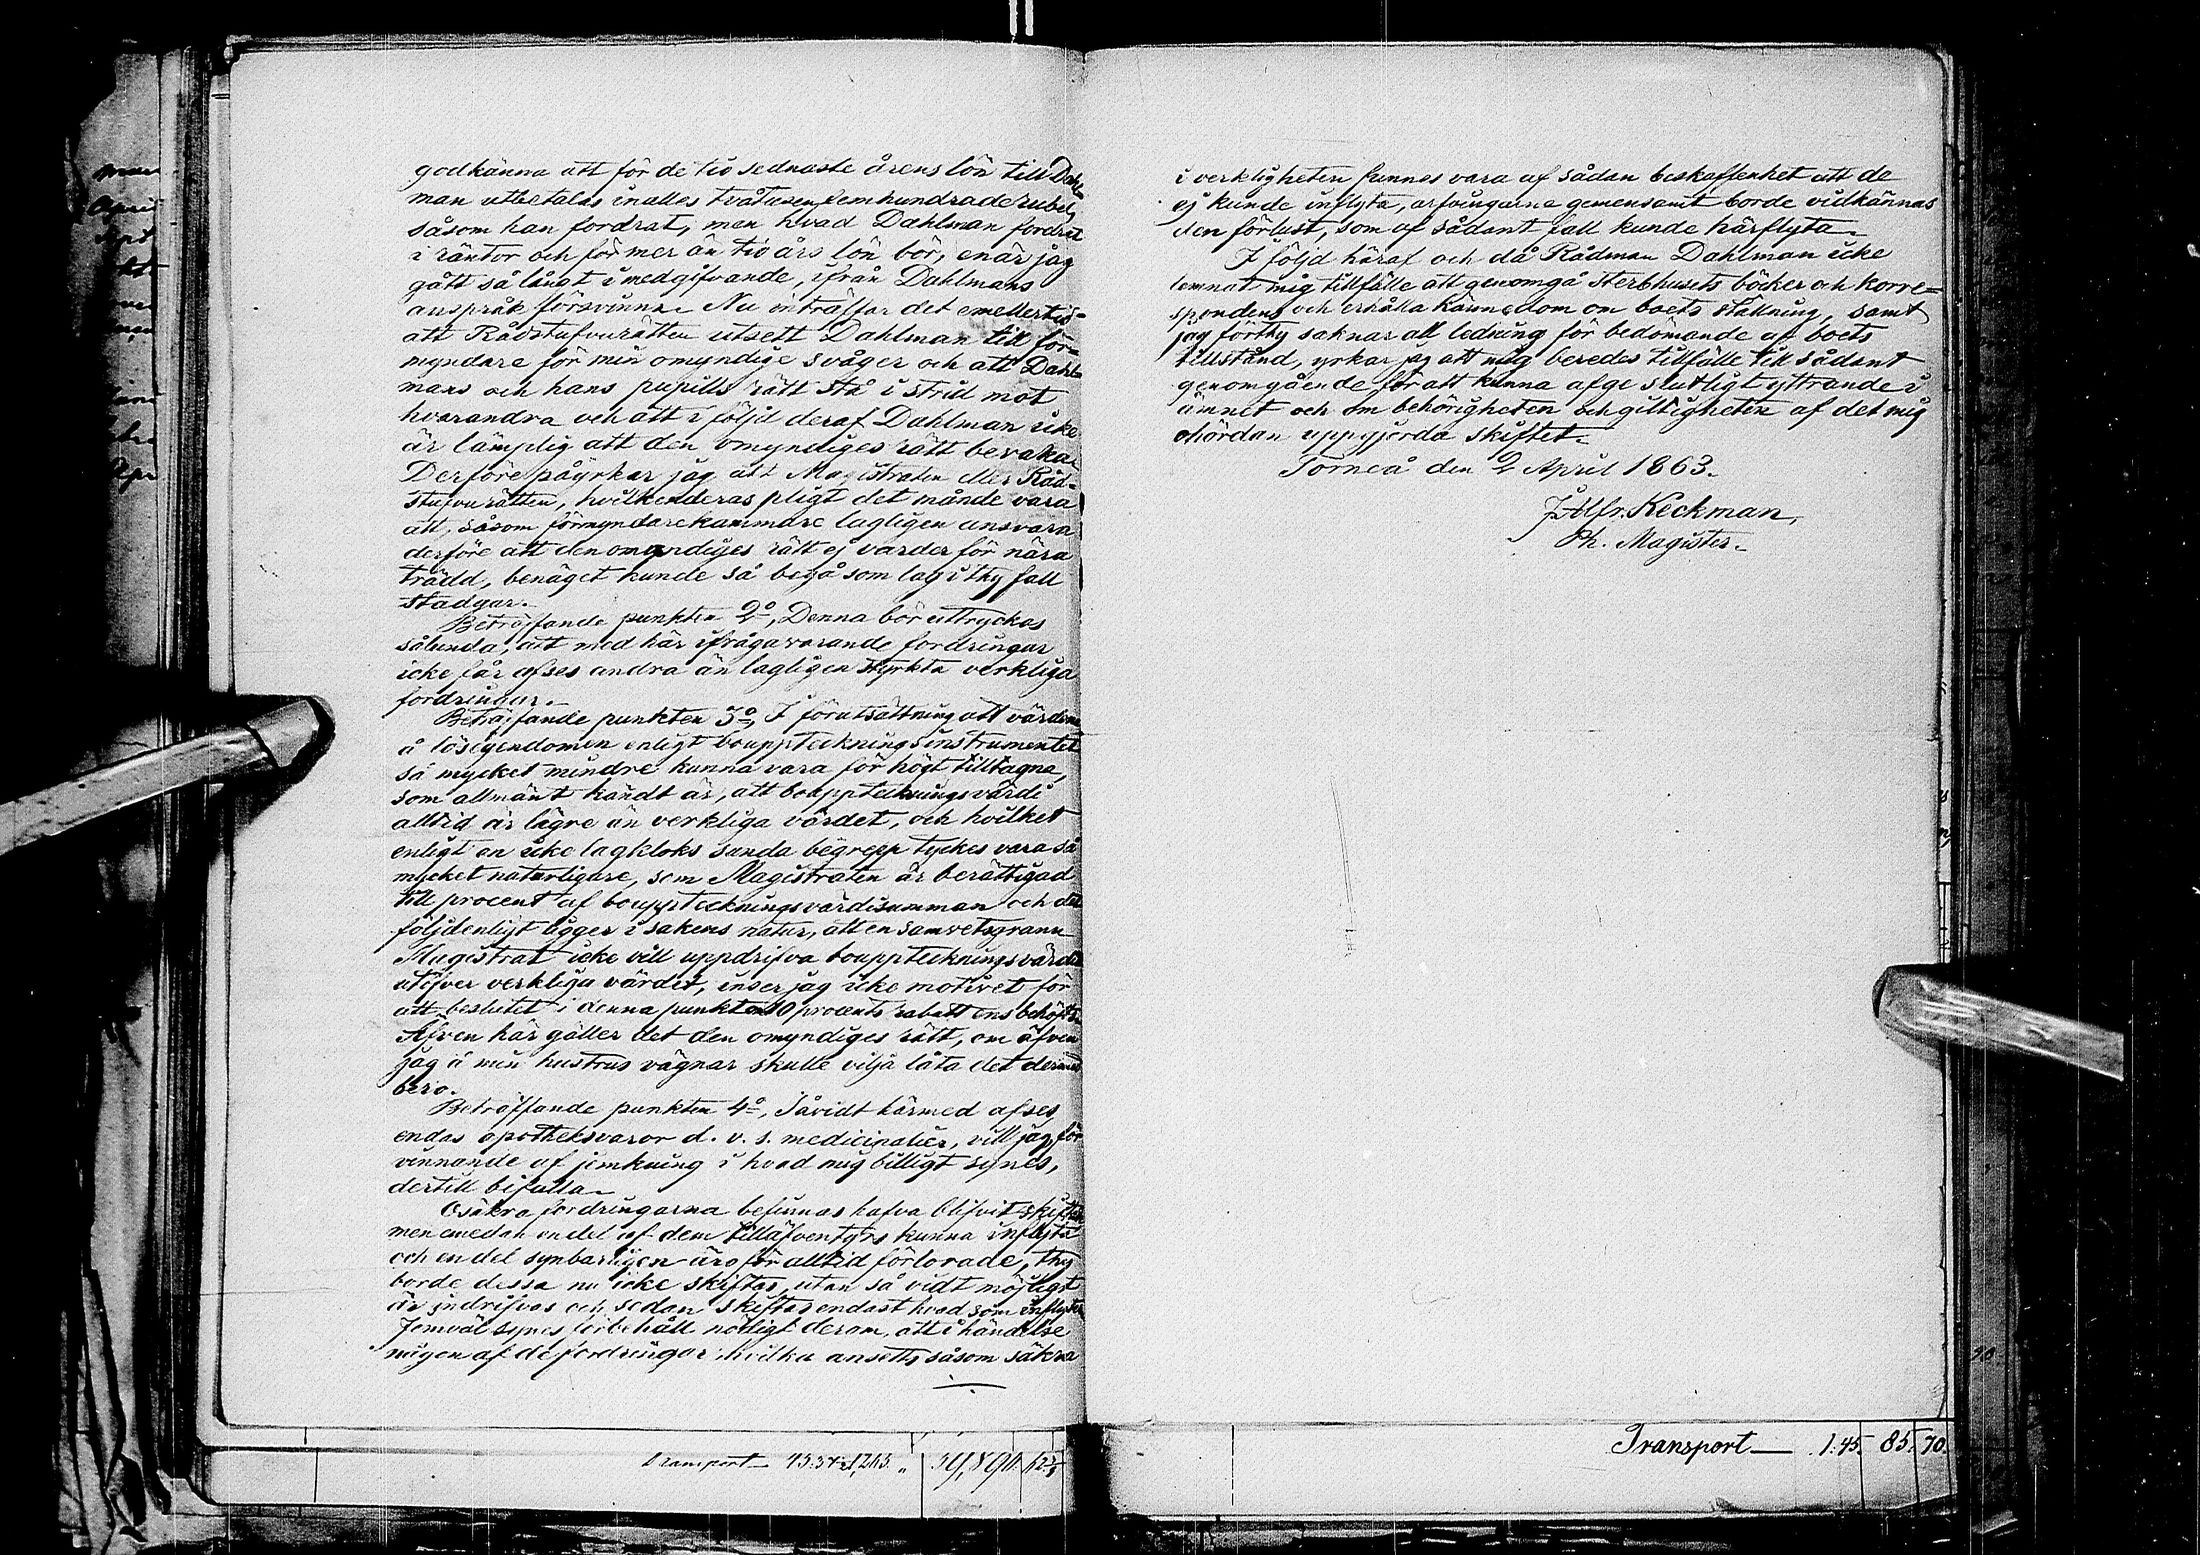 godkänna att för de tio sednaste årens lön till Dahl
man utbetalas inalles tvåtusenfemhundrade rubel,
såsom han fordrat, men hvad Dahlman fordrat
i räntor och för mer än tio års lön bör, enär jag
gått så långt i medgifvande, ifrån Dahlmans
anspråk försvinna. Nu inträffar det emellertid
att Rådstufvurätten utsett Dahlman till för=
myndare för min omyndige svåger och att Dahl=
mans och hans pupills rätt stå i strid mot
hvarandra och att i följd deraf Dahlman icke
är lämplig att den omyndiges rätt bevaka.
Derföre påyrkar jag att Magistraten eller Råd=
stufvurätten, hvilkenderas pligt det månde vara
att, såsom förmyndarekammare lagligen ansvara
derföre att den omyndiges rätt ej varder för nära
trädd, benäget kunde så begå som lag i thy fall
stadgar.
Beträffande punkten 2o, Denna bör uttryckas
sålunda, att med här ifrågavarande fordringar
icke får afses andra än lagligen styrkta verkliga
fordringar.
Beträffande punkten 3o, I förutsättning att värdena
å lösegendomen enligt bouppteckningsinstrumentet
så mycket mindre kunna vara för högt tilltagna,
som allmänt kändt är, att bouppteckningsvärde
alltid är lägre än verkliga värdet, och hvilket
enligt en icke lagkloks sunda begrepp tyckes vara så
mycket naturligare, som Magistraten är berättigad
till procent af bouppteckningsvärdesumman och det
följdenligt ligger i sakens natur, att en samvetsgrann
Magistrat icke vill uppdrifva bouppteckningsvärdet
utöfver verkliga värdet, inser jag icke motivet för
att beslutet i denna punkt om 10 procents rabatt ens behöfts.
Äfven här gäller det den omyndiges rätt, om äfven
jag å min hustrus vägnar skulle vilja låta det dermed
bero.
Beträffande punkten 4o, Såvidt härmed afses
endas apotheksvaror d. v. s. medicinalier, vill jag för
vinnande af jemkning i hvad mig billigt synes,
dertill bifalla.
Osäkra fordringarna befinnas hafva blifvit skiftade
men emedan en del af dem tilläfventyrs kunna inflyta
och en del synbarligen äro för alltid förlorade, thy
borde dessa nu icke skiftas, utan så vidt möjligt
är indrifvas och sedan skiftas endast hvad som inflyter
Jemväl synes förbehåll nödigt derom, att i händelse
någon af de fordringar, hvilka ansetts såsom säkra
Transport
i verkligheten funnes vara af sådan beskaffenhet att de
ej kunde inflyta, arfvingarne gemensamt borde vidkännas
den förlust, som af sådant fall kunde härflyta.
I följd häraf och då Rådman Dahlman icke
lemnat mig tillfälle att genomgå sterbhusets böcker och korre=
spondens och erhålla kännedom om boets ställning, samt
jag förthy saknar all ledning för bedömande af boets
tillstånd, yrkar jag att mig beredes tillfälle till sådant
genomgående för att kunna afge slutligt yttrande i
ämnet och om behörigheten och giltigheten af det mig
ohördan uppgjorda skiftet.
Torneå den 2 April 1863.
J. Alfr. Keckman,
Ph. Magister.
Transport 1.45. 85. 70.